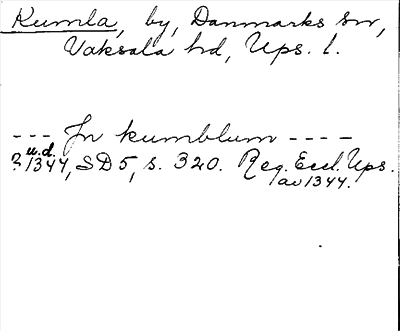 Kumla, by, Danmarks sn,
Vaksala hd, Ups. l.
--- Jn kumblum ----
u.d.
? 1344, SD 5, s. 320. Reg. Eccl. Ups.
av 1344.